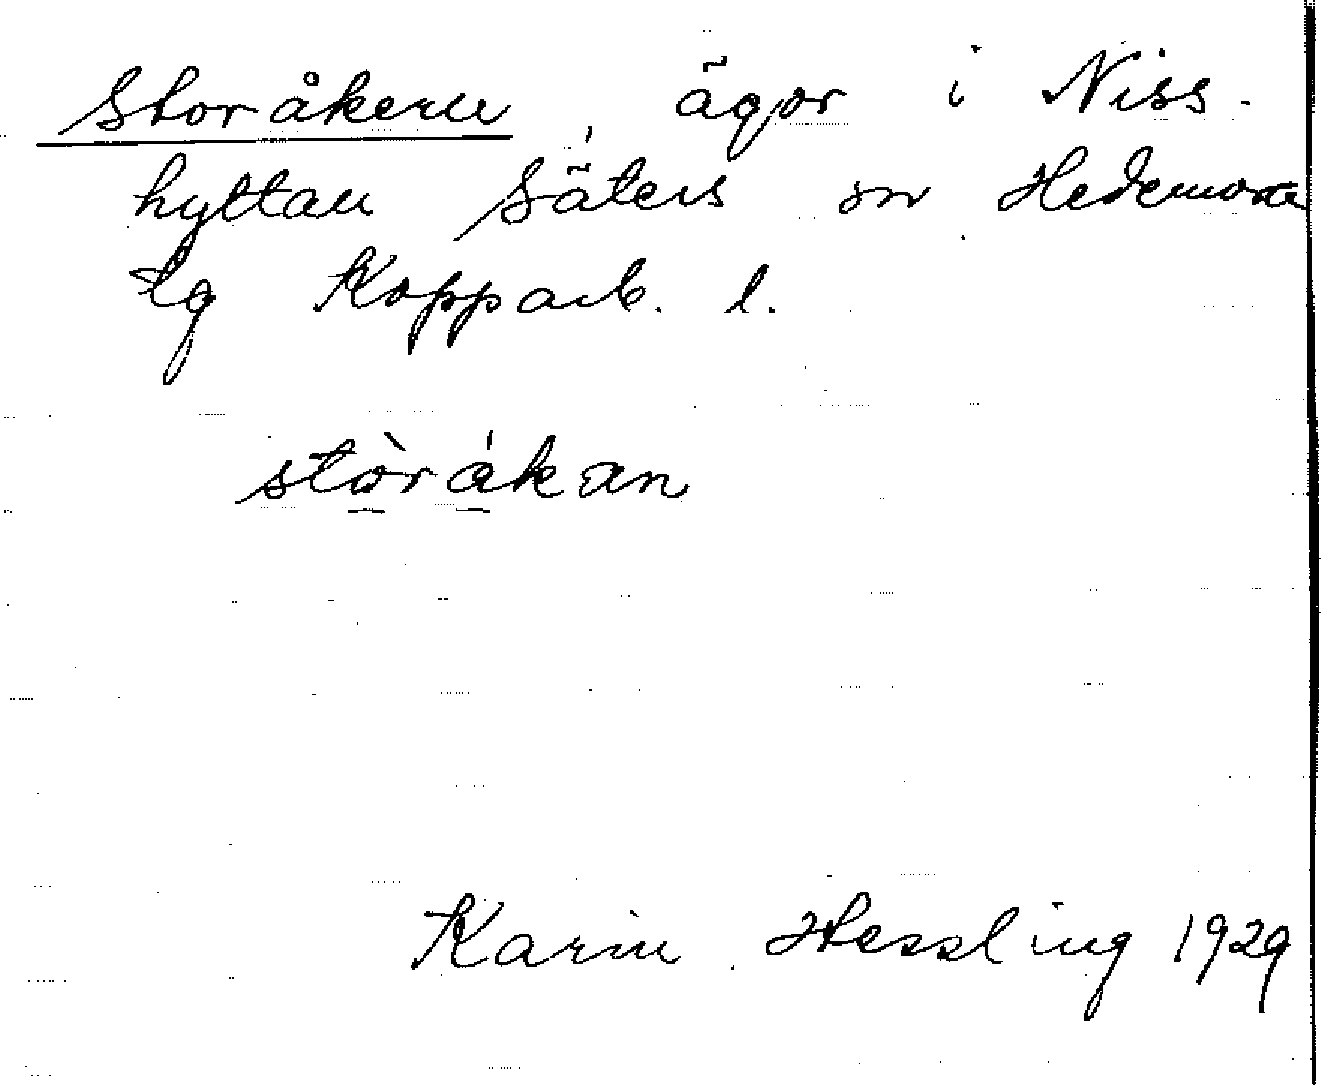 Storåkern, ägor i Niss-
hyttan Säters sn Hedemora
tg Kopparb. l.
stòrákan
Karin Hessling 1929